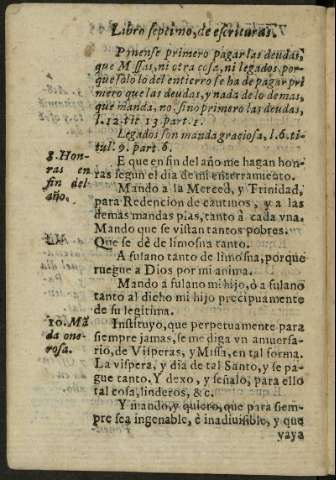 Libro septimo, de escrituras.
Ponense primero pagar las deudas,
que Missas, ni otra cosa, ni legados, por-
que solo lo del entierro se ha de pagar pri
mero que las deudas, y nada de lo demas,
que manda, no, sino primero las deudas,
l. 12. tit 13. part. 1.
Legados son manda graciosa, l. 6. ti-
tul. 9. part. 6.
8. Hon-
ras en
fin del
año.
E que en fin del año me hagan hon
ras segun el dia de mi enterramiento.
Mando a la Merced, y Trinidad,
para Redencion de cautiuos, y a las
demas mandas pias, tanto à cada vna.
Mando que se vistan tantos pobres.
Que se dè de limosna tanto.
A fulano tanto de limosna, porque
ruegue a Dios por mi anima.
Mando a fulano mi hijo, ò a fulano
tanto al dicho mi hijo precipuamente
de su legitima.
10. Mã
da one-
rosa.
Instituyo, que perpetuamente para
siempre jamas, se me diga vn anuersa-
rio, de Visperas, y Missa, en tal forma.
La vispera, y dia de tal Santo, y se pa-
gue tanto. Y dexo, y señalo, para ello
tal cosa, linderos, &c.
Y mando, y quiero, que para siem-
pre sea ingenable, è inadiuisible, y que
vaya